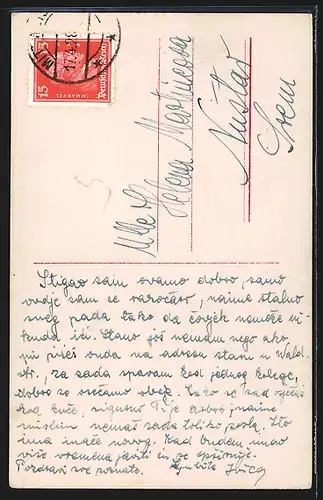 15 15
Deutsches Reich
IMMANUEL
17.2.28
Mlle
Helena Martincova
Nuštar
Srem
Stigao sam ovamo dobro, samo
ovdje sam se razočarao, naime stalno
sneg pada tako da čovjek nemože ni-
kuda ići. Stana još nemam nego ako
mi pišeš onda na adresu stari u Wald.
str., za sada spavam kod jednog kolege,
dobro se osećamo obojica. Kako se sad osjećaš
kod kuće, sigurno Ti je dobro, naime
mislim nemaš sada toliko posla. Što
ima inače novog. Kad budem imao
više vremena javiti ću se opširnije.
Pozdravi sve poznate. Ljubi te Ivica